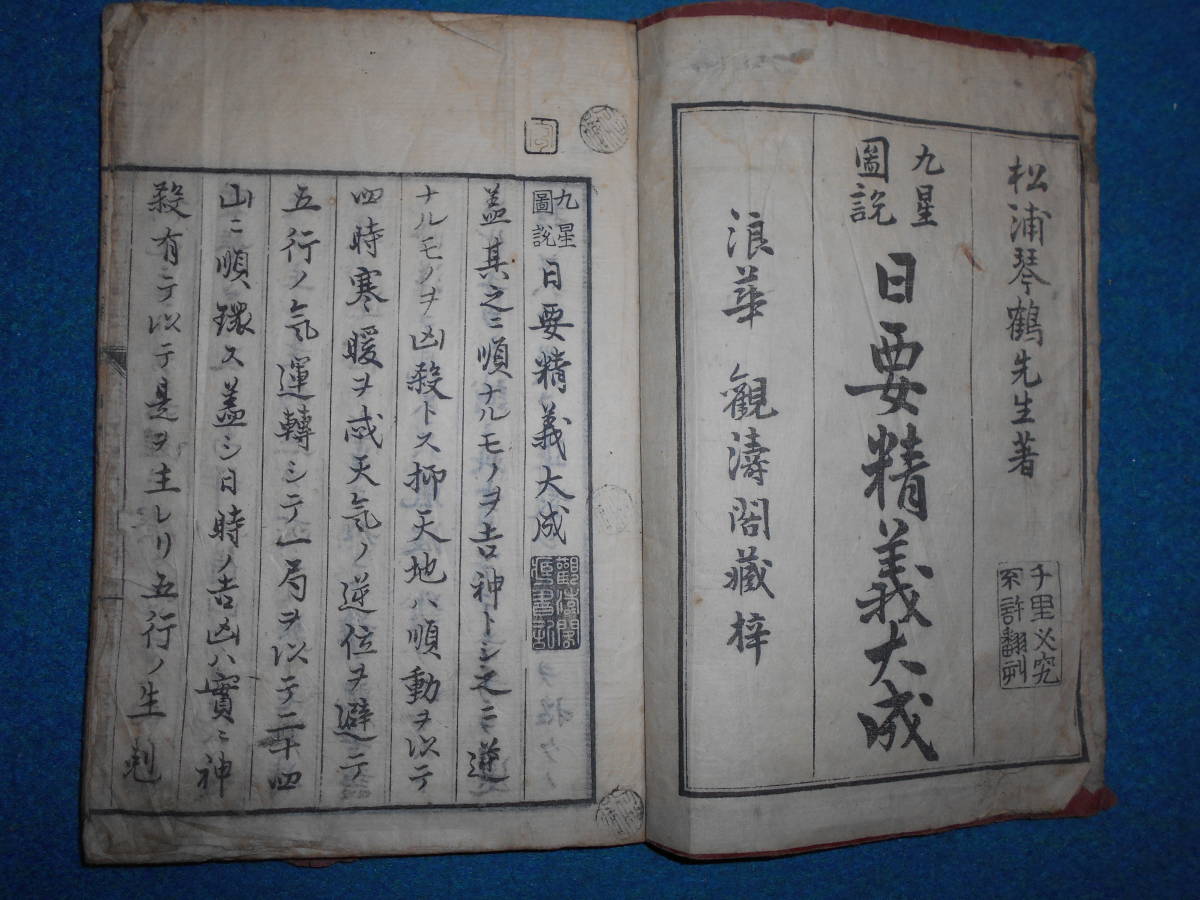 松浦琴鶴先生著
千里必究
不許翻刻
九星
圖説
日要精義大成
浪華 觀濤閣藏梓
九星
圖説
日要精義大成
觀濤閣
蓋其之ニ順ナルモノヲ吉神トシ之ニ逆
ナルモノヲ凶殺トス抑天地ハ順動ヲ以テ
四時寒暖ヲ感天気ノ逆位ヲ避ケテ
五行ノ気運轉シテ一局ヲ以テ二十四
山ニ順環ス蓋シ日時ノ吉凶ハ實ニ神
殺有テ以テ是ヲ主レリ五行ノ生剋